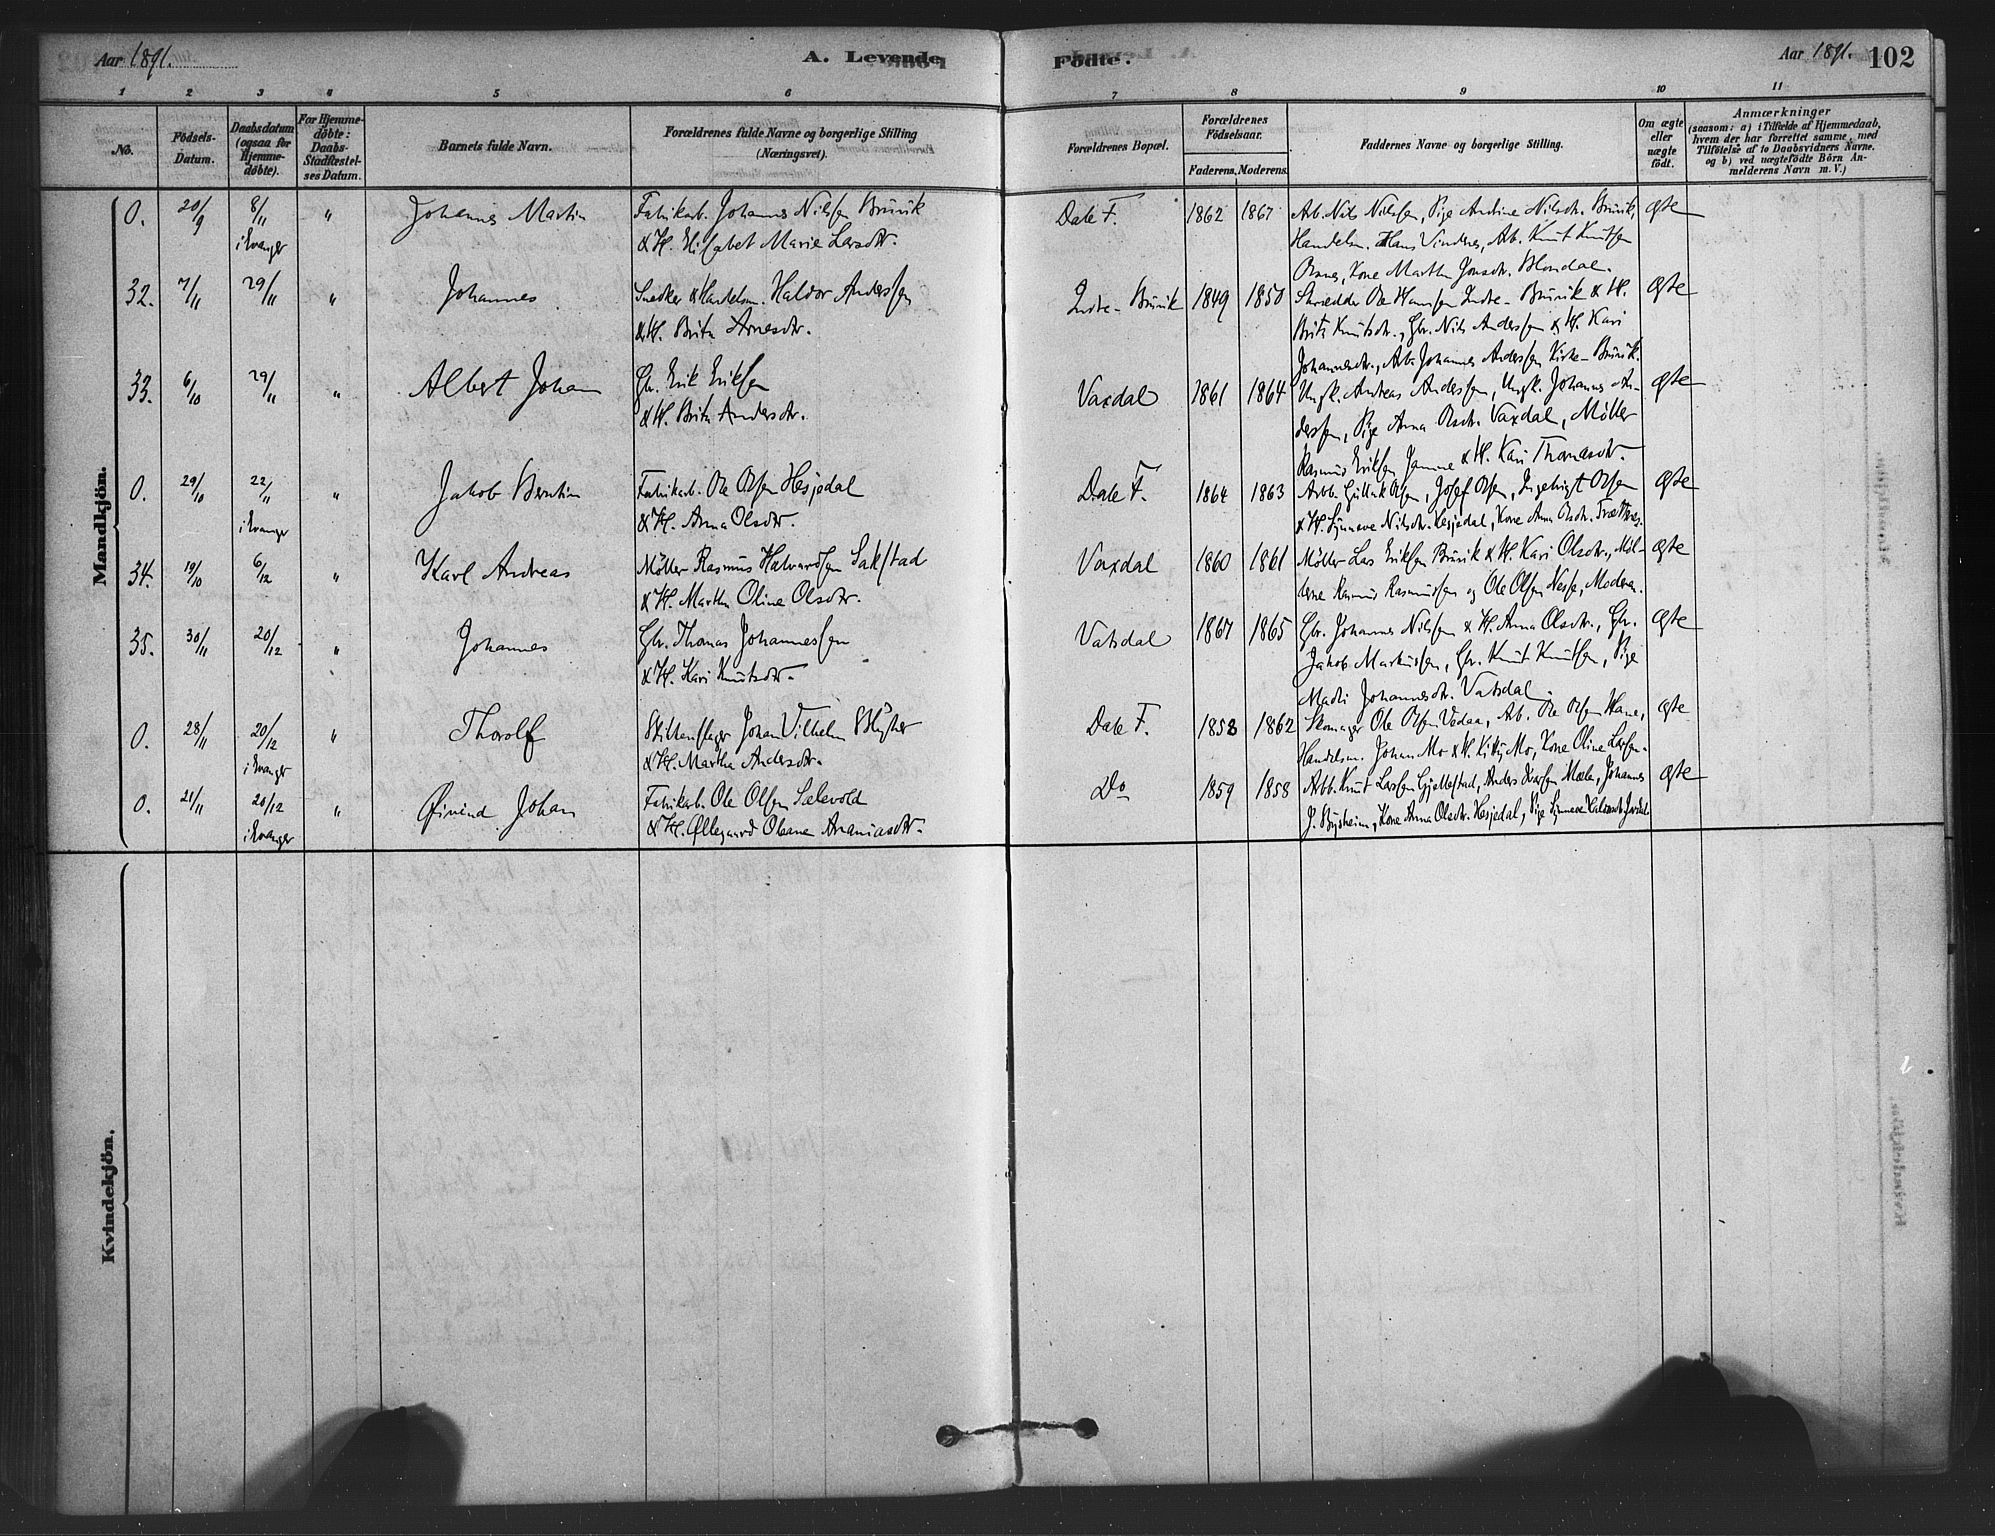 Aar 1891. A. Levende Födte. Aar 1891. 102
1 2 3 4 5 6 7 8 9 10 11
No.
Födsels-Datum.
Daabsdatum (ogsaa for Hjemme-döbte).
For Hjemme-döbte: Daabs-Stadfæstel-ses Datum.
Barnets fulde Navn.
Forældrenes fulde Navne og borgerlige Stilling
(Næringsvei).
Forældrenes Bopæl.
Forældrenes Födselsaar.
Faderens. Moderens.
Faddernes Navne og borgerlige Stilling.
Om ægte eller uægte födt.
Anmærkninger
(saasom: a) i Tilfælde af Hjemmedaab,
hvem der har forrettet samme, med
Tilföielse af to Daabsvidners Navne.
og b) ved uægtefödte Börn An-
melderens Navn m. V.)
Mandkjön.
0. 20/9 8/11 " Johannes Martin Fabrikarb. Johannes Nilssen Bruvik Dale F. 1862 1867 Arb. Nils Nilssen, Pige Andrine Nilsdtr. Bruvik, ægte
i Evanger & H. Elisabet Marie Larsdtr. Handelsm. Hans Vindenes, Arb. Knut Knutsen
Kone Martha Jonsdtr. Blomdal.
32. 7/11 29/11 " Johannes Snedker & Handelsm. Haldor Anderssen Indre-Bruvik 1849 1850 Skrædder Ole Hanssen Indre-Bruvik & H. ægte
& H. Brita Arnesdtr. Brita Knutsdtr., Gbr. Nils Anderssen & H. Kari
Johannesdtr., Arb. Johannes Anderssen Kirke-Bruvik.
33. 6/10 29/11 " Albert Johan Gbr. Erik Eriksen Vaxdal 1861 1864 Ungk. Andreas Anderssen, Ungk. Johannes An- ægte
& H. Brita Andersdtr. derssen, Pige Anna Olsdtr. Vaxdal, Møller
Rasmus Eriksen & H. Kari Thomasdtr.
0. 29/10 22/11 " Jakob Berntin Fabrikarb. Ole Olsen Hesjedal Dale F. 1864 1863 Arbb. Gullak Olsen, Josef Olsen, Ingebrigt Olsen ægte
i Evanger & H. Anna Olsdtr. & H. Synneve Nilsdtr. Hesjedal, Kone Anna Olsdtr.
34. 19/10 6/12 " Karl Andreas Møller Rasmus Halvardsen Sakstad Vaxdal 1860 1861 Møller Lars Eriksen Bruvik & H. Kari Olsdtr., Møl- ægte
& H. Martha Oline Olsdtr. lerne Rasmus Rasmussen og Ole Olsen Nesse, Moderen.
35. 30/11 20/12 " Johannes Gbr. Thomas Johannessen Vatsdal 1867 1865 Gbr. Johannes Nilssen & H. Anna Olsdtr., Gbr. ægte
& H. Kari Knutsdtr. Jakob Markussen, Gbr. Knut Knutsen, Pige
Johannesdtr. Vatsdal.
0. 28/11 20/12 " Thorolf Johan Vilhelm Dale F. 1858 1862 Skomager Ole Olsen Vedaa, Arb. Ole Olsen ægte
i Evanger & H. Martha Andersdtr. Handelsm. Johan Mo & H. Kitty Mo, Kone Oline Larsen.
0. 21/11 20/12 " Øivind Johan Fabrikarb. Ole Olsen Sælevold Do 1859 1858 Arbb. Knut Larssen Gjellestad, Anders Mæle, Johannes ægte
i Evanger & H. Øllegaard Oleane Ananiasdtr. J. Bysheim, Kone Anna Olsdtr. Hesjedal, Pige Synneve
Kvindekjön.